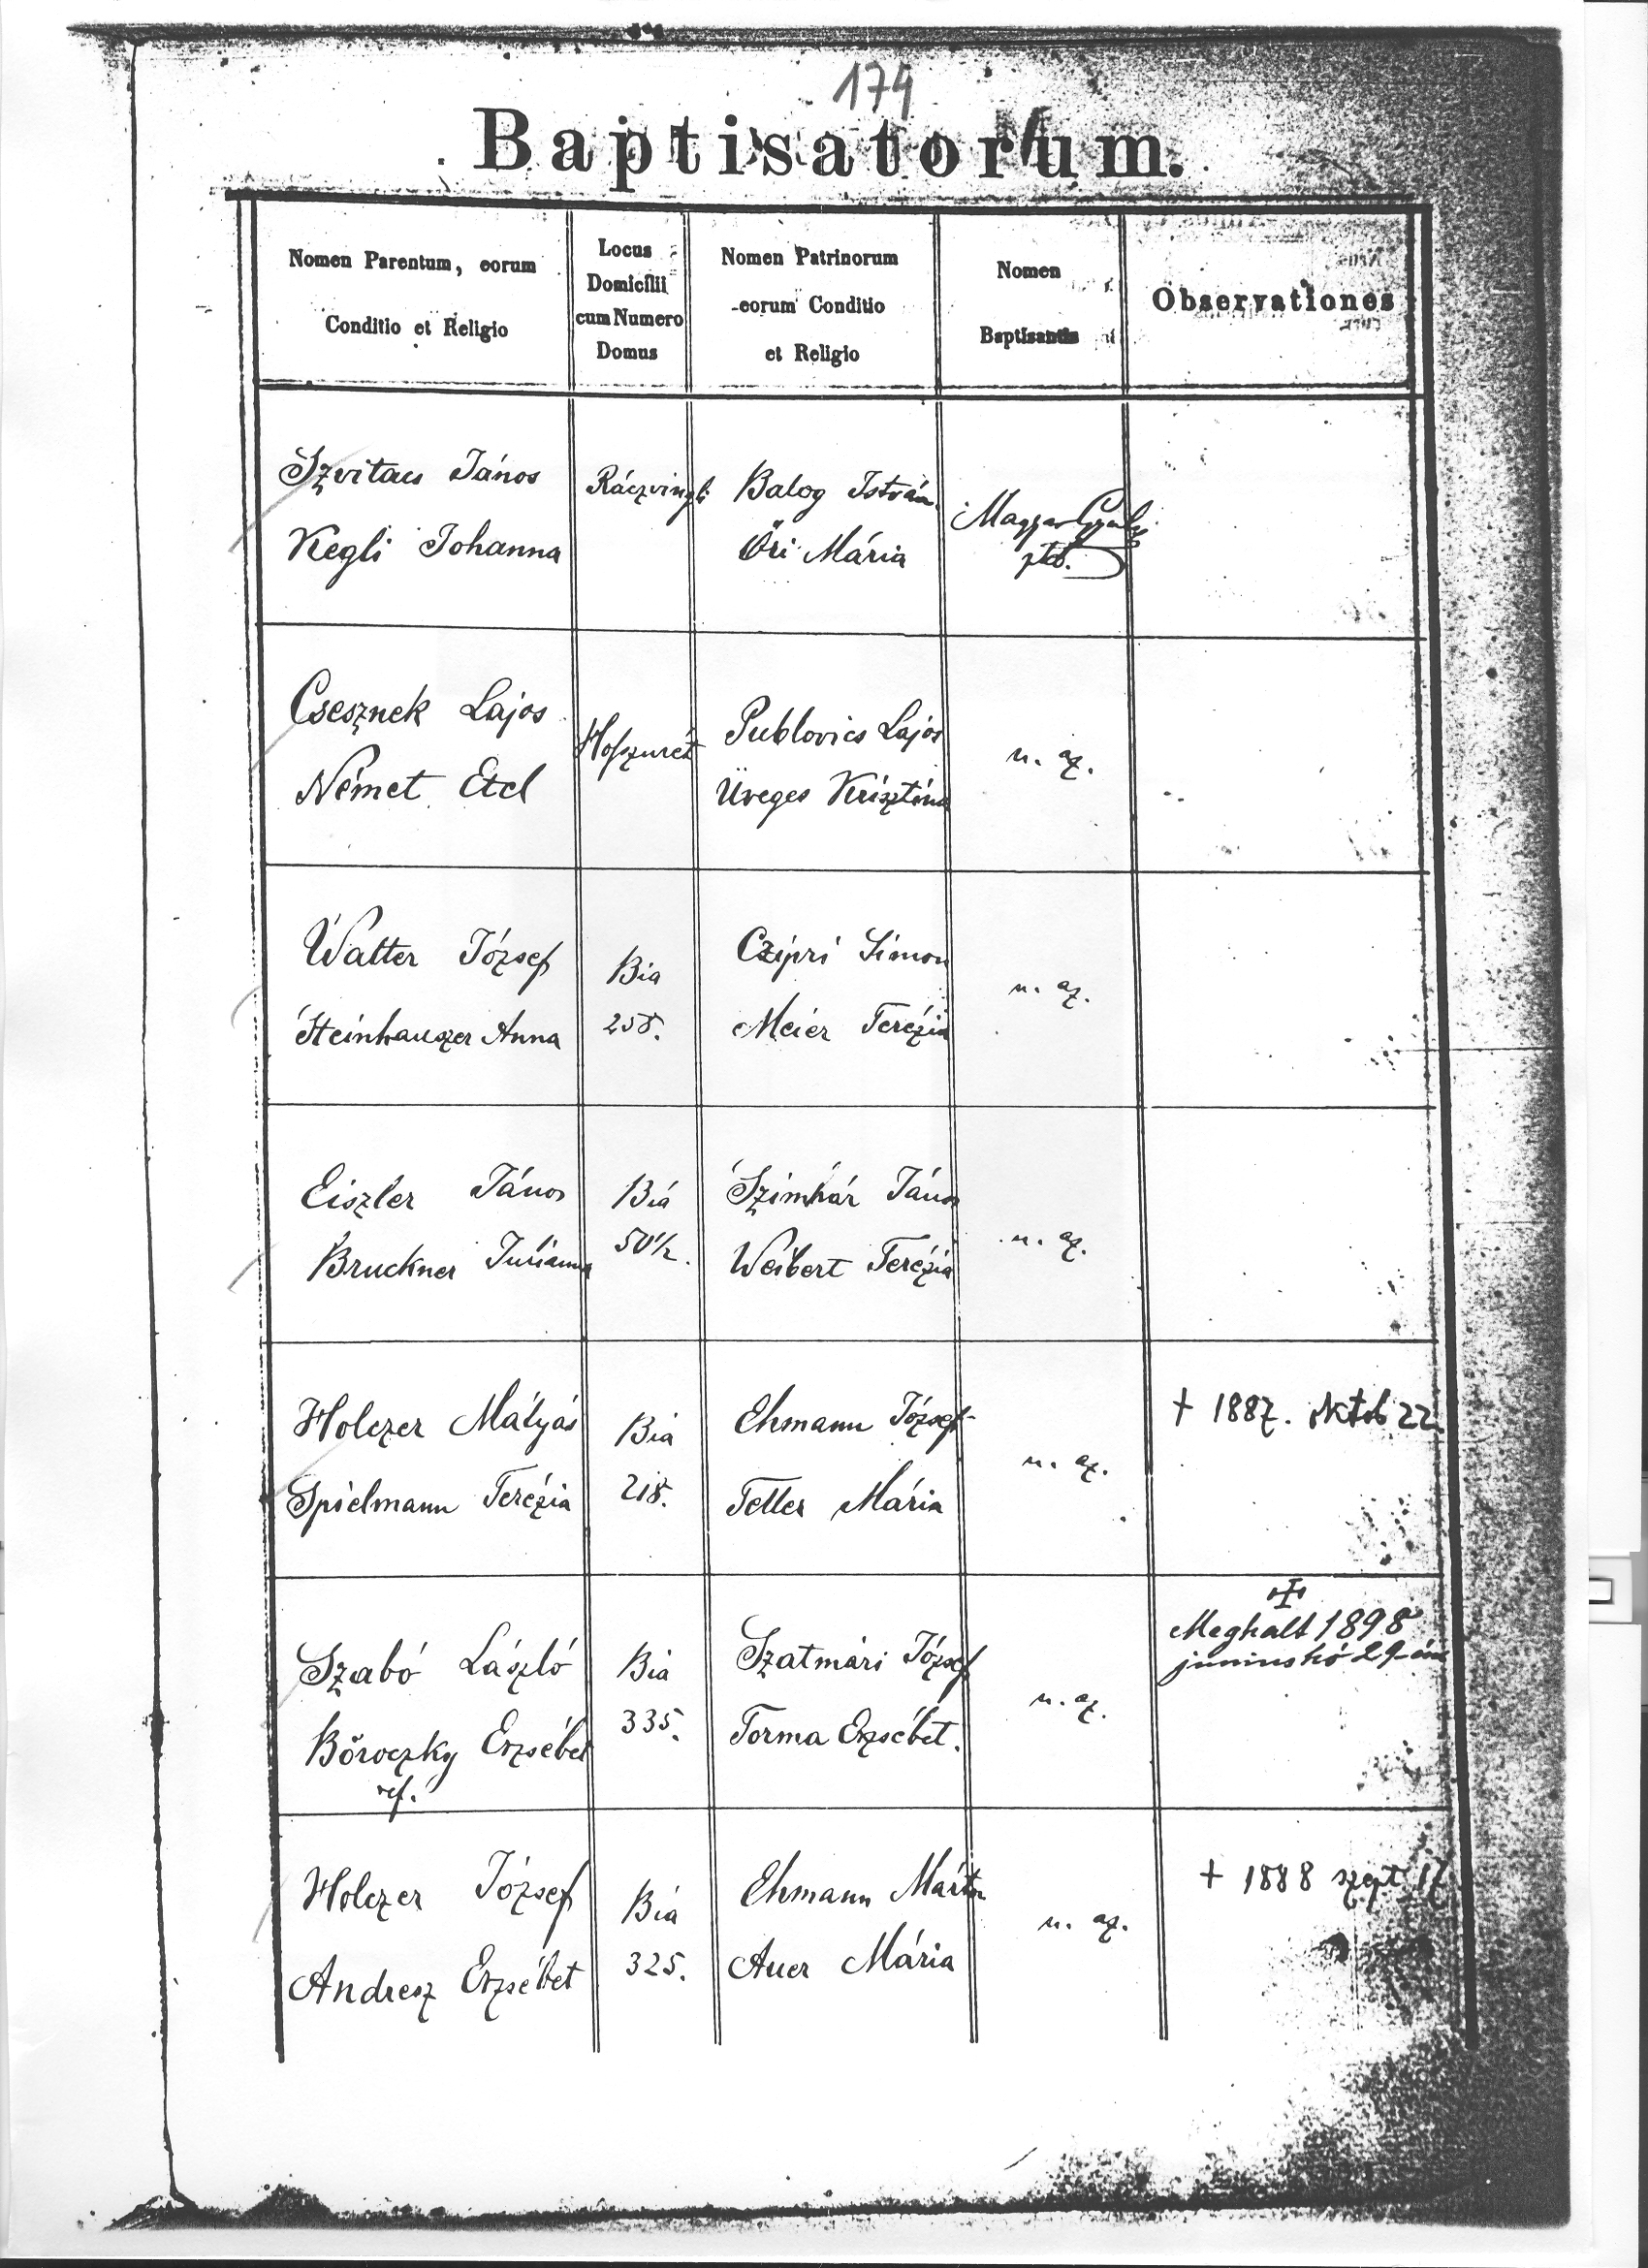 174
Baptisatorum.
Nomen Parentum, eorum
Conditio et Religio
Locus
Domicilii
cum Numero
Domus
Nomen Patrinorum
eorum Conditio
et Religio
Nomen
Baptisantis
Observationes
Szvitacs János
Kegli Johanna
Balog István
Őri Mária
Magyar Gyula
plb.
Csesznek Lajos
Német Etel
Publovics Lajos
Üveges Krisztina
u. az.
Walter József
Steinhauszer Anna
Bia
258.
Czipri Simon
Meier Terézia
u. az.
Eiszler János
Bruckner Julianna
Bia
50½.
Szimhár János
Weibert Terézia
u. az.
Holczer Mátyás
Spielmann Terézia
Bia
218.
Ehmann József
Teller Mária
u. az.
+ 1887. oktob 22.
Szabó László
Böröczky Erzsébet
ref.
Bia
335.
Szatmári József
Torma Erzsébet.
u. az.
Meghalt 1898
juniushó 29-én
Holczer József
Andresz Erzsébet
Bia
325.
Ehmann Márton
Auer Mária
u. az.
+ 1888 szept 17